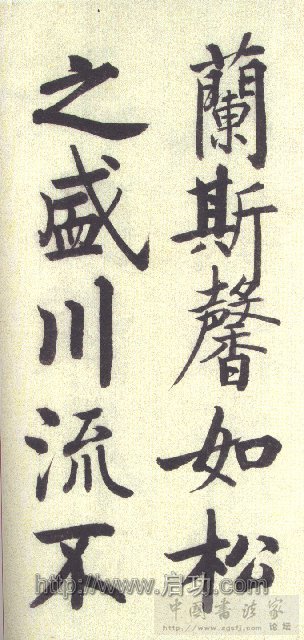 蘭斯馨如松
之盛川流不
http://www.启功.com
中国书法家论坛
http://www.zgsfj.com